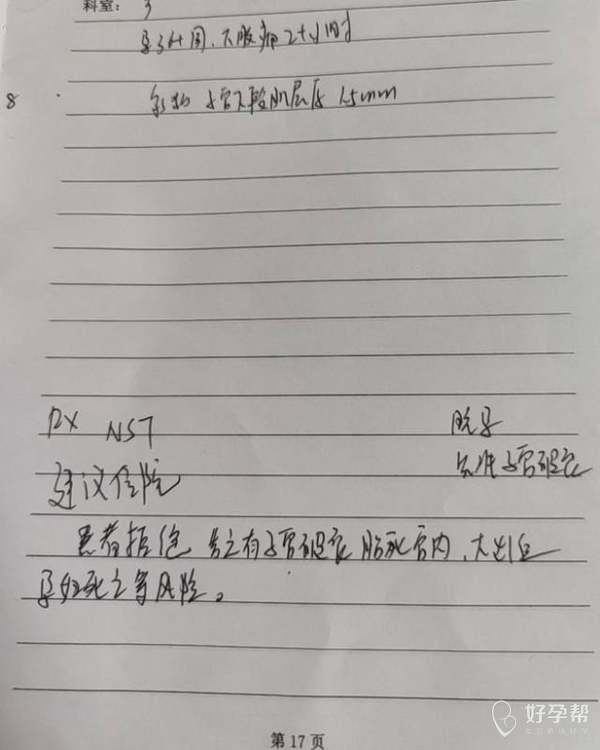 科室: 3
孕34+周,下腹痛2+小时
8
彩超 子宫下段肌层厚 1.5mm
Rx NST
晚孕
建议住院
先兆子宫破裂
患者拒绝 告之有子宫破裂 胎死宫内,大出血
孕妇死亡等风险。
第 17 页
好孕帮